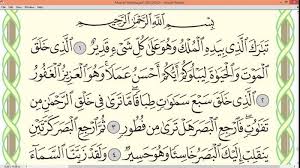 بِسْمِ اللَّهِ الرَّحْمَٰنِ الرَّحِيمِ
تَبَٰرَكَ ٱلَّذِى بِيَدِهِ ٱلْمُلْكُ وَهُوَ عَلَىٰ كُلِّ شَىْءٍ قَدِيرٌ ١ ٱلَّذِى خَلَقَ
ٱلْمَوْتَ وَٱلْحَيَوٰةَ لِيَبْلُوَكُمْ أَيُّكُمْ أَحْسَنُ عَمَلًا وَهُوَ ٱلْعَزِيزُ ٱلْغَفُورُ
٢ ٱلَّذِى خَلَقَ سَبْعَ سَمَٰوَٰتٍ طِبَاقًا مَّا تَرَىٰ فِى خَلْقِ ٱلرَّحْمَٰنِ مِن
تَفَٰوُتٍ فَٱرْجِعِ ٱلْبَصَرَ هَلْ تَرَىٰ مِن فُطُورٍ ٣ ثُمَّ ٱرْجِعِ ٱلْبَصَرَ كَرَّتَيْنِ
يَنقَلِبْ إِلَيْكَ ٱلْبَصَرُ خَاسِئًا وَهُوَ حَسِيرٌ ٤ وَلَقَدْ زَيَّنَّا ٱلسَّمَآءَ